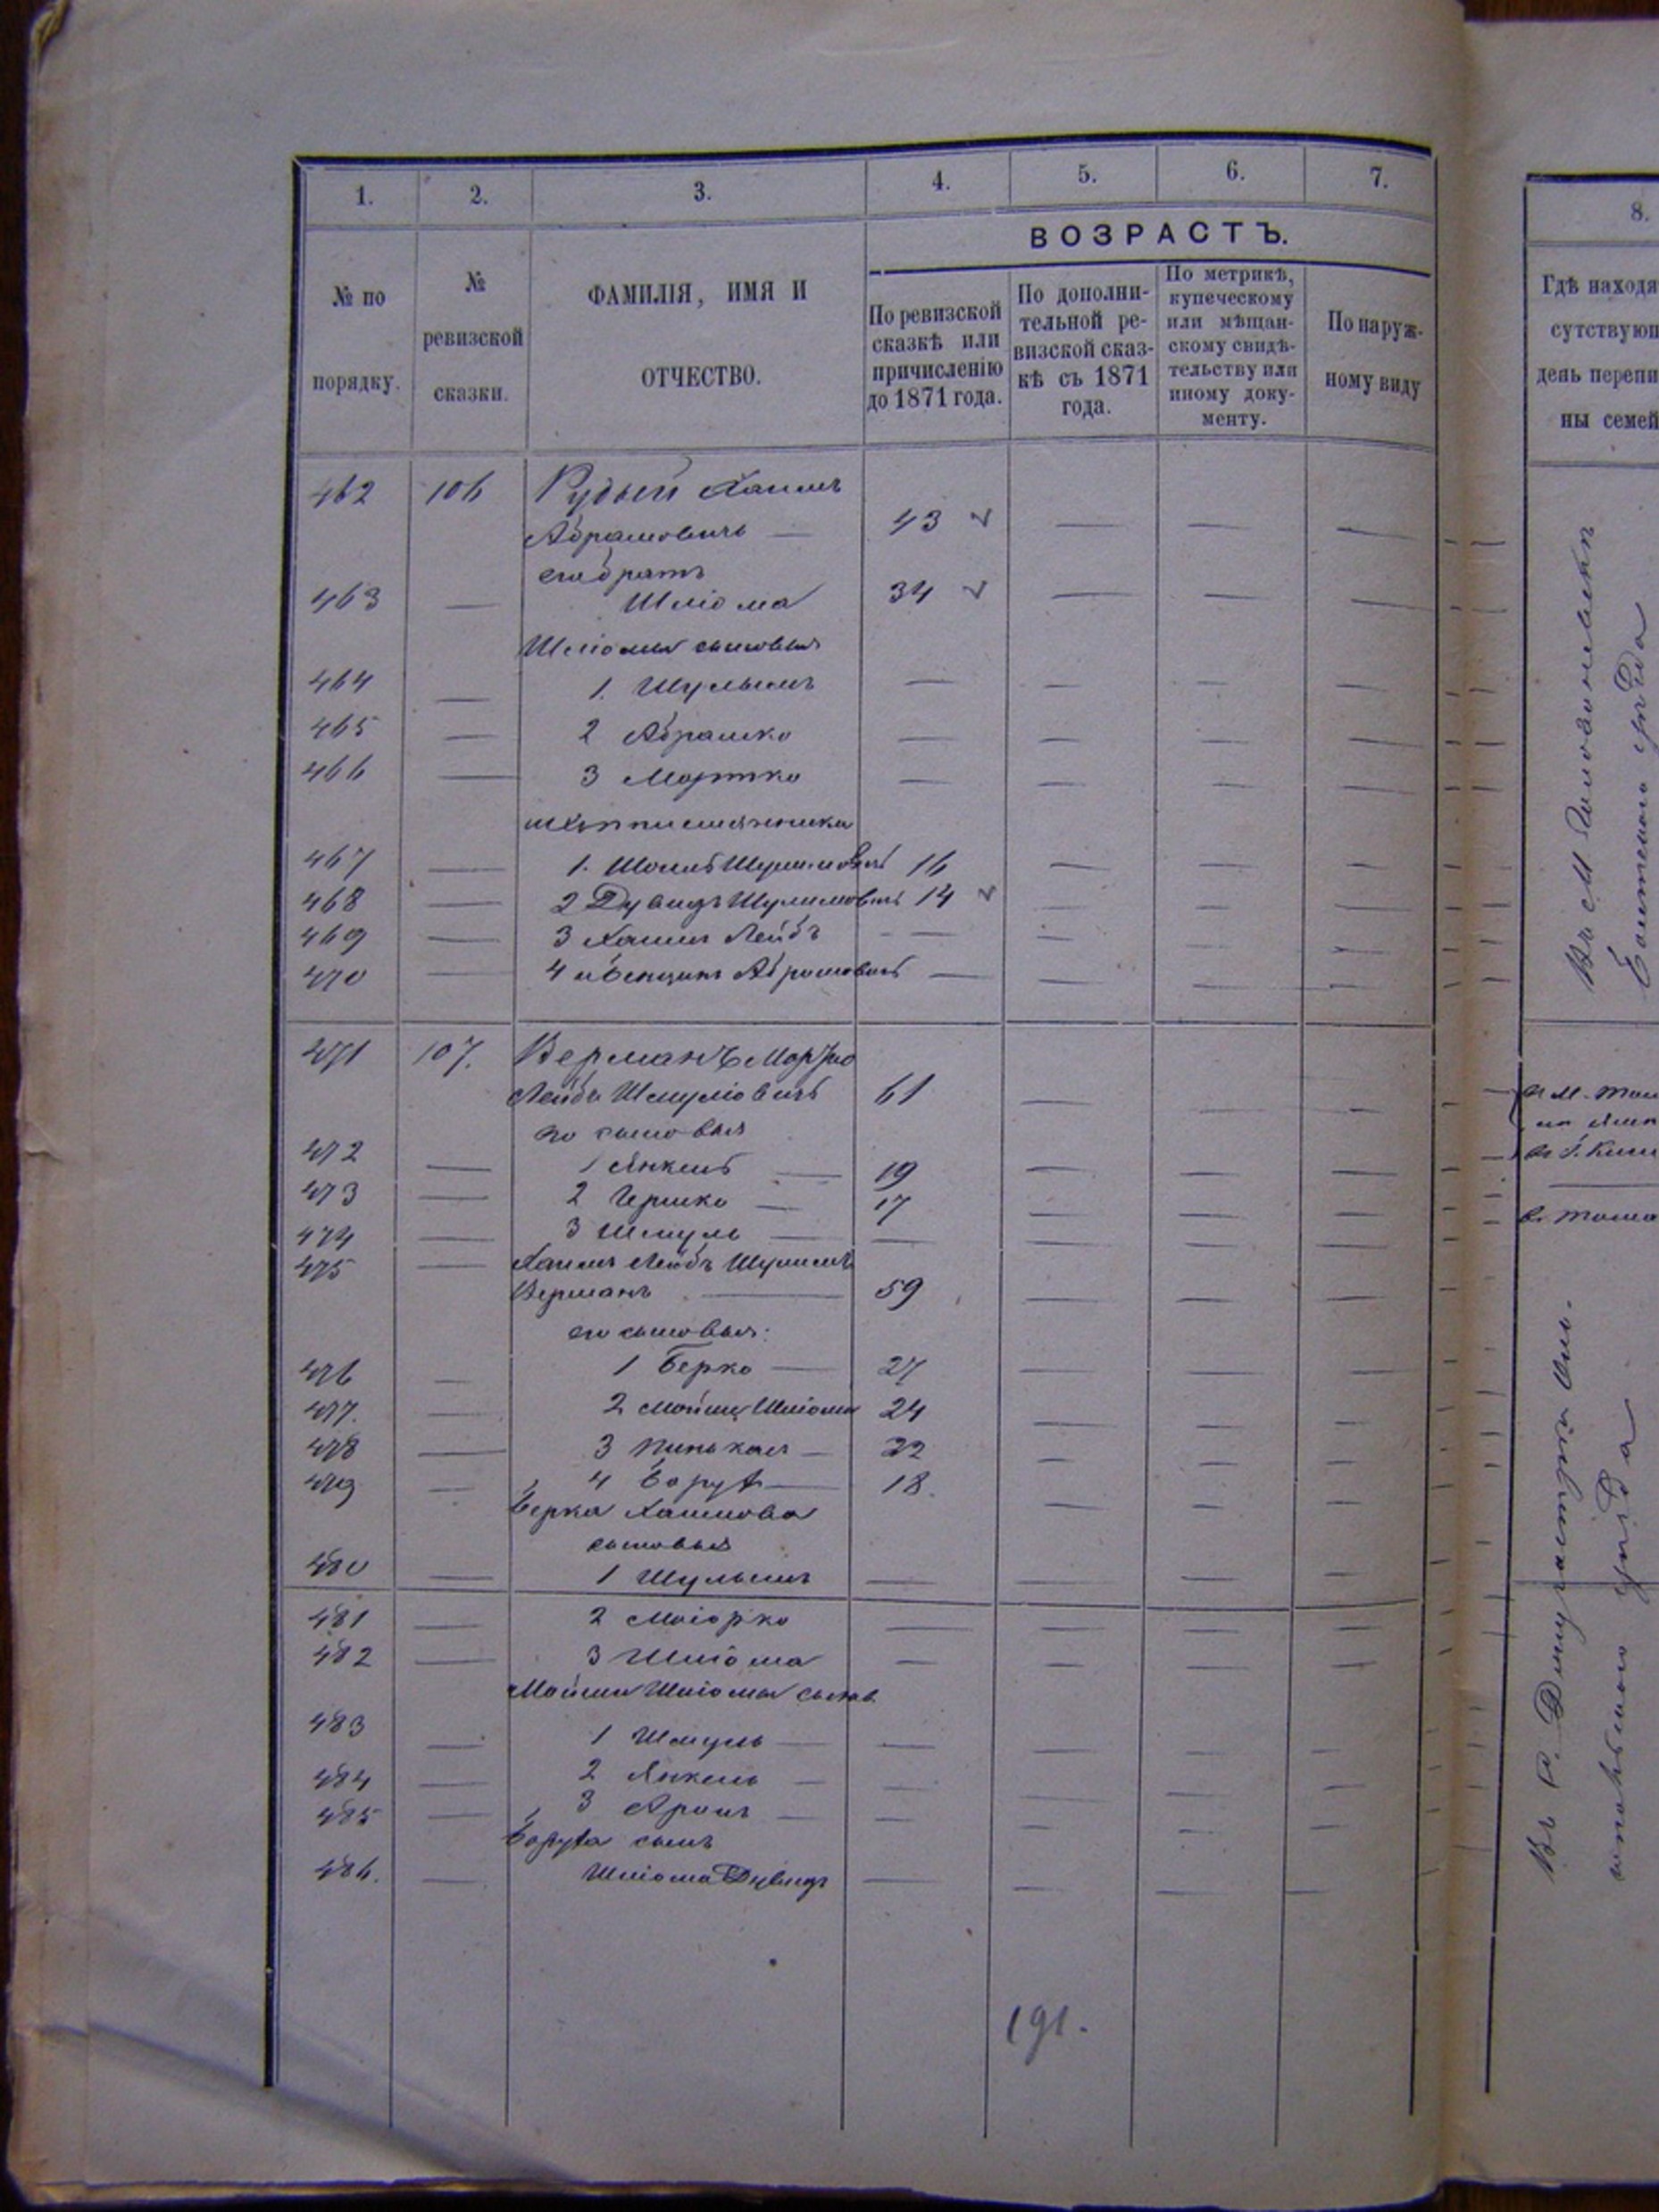 1. 2. 3. 4. 5. 6. 7.
ВОЗРАСТЪ.
№ по порядку.
№ ревизской сказки.
ФАМИЛІЯ, ИМЯ И ОТЧЕСТВО.
По ревизской сказкѣ или причисленію до 1871 года.
По дополни-тельной ре-визской сказ-кѣ съ 1871 года.
По метрикѣ, купеческому или мѣщан-скому свидѣ-тельству или иному доку-менту.
По наруж-ному виду
462 106 Рудый Хаимъ
Абрамовичъ — 43 — — —
его братъ
463 — Шліома 34 — — —
Шліомы сыновья
464 — 1. Шулымъ — — — —
465 — 2 Абрамко — — — —
466 — 3 Мортко — — — —
племянники
467 — 1. Шоилъ Шулимовъ 16 — — —
468 — 2 Дувидъ Шулимовъ 14 — — —
469 — 3 Хаимъ Лейбъ — — — —
470 — 4 Абрамовичъ — — — —
471 107. Верманъ Мортко
Лейбъ Шмуліовичъ 61 — — —
его сыновья
472 — 1 Янкель — 19 — — —
473 — 2 Гершко — 17 — — —
474 — 3 Шмуль — — — — —
475 — Хаимъ Лейбъ Шулимъ
Верманъ — 59 — — —
его сыновья:
476 — 1 Берко — 27 — — —
477. — 2 Мойше Шліома 24 — — —
478 — 3 Пинькас — 22 — — —
479 — 4 Борух — 18. — — —
Берка Хаимова
сыновья
480 — 1 Шулымъ — — — —
481 — 2 Маіорко — — — —
482 — 3 Шліома — — — —
Мойши Шліомы сынов.
483 — 1 Шмуль — — — — —
484 — 2 Янкель — — — — —
485 — 3 Аронъ — — — — —
Боруха сынъ
486. — Шліома Дувидъ — — — —
191.
8.
Гдѣ находя
сутствующ
день перепи
ны семей